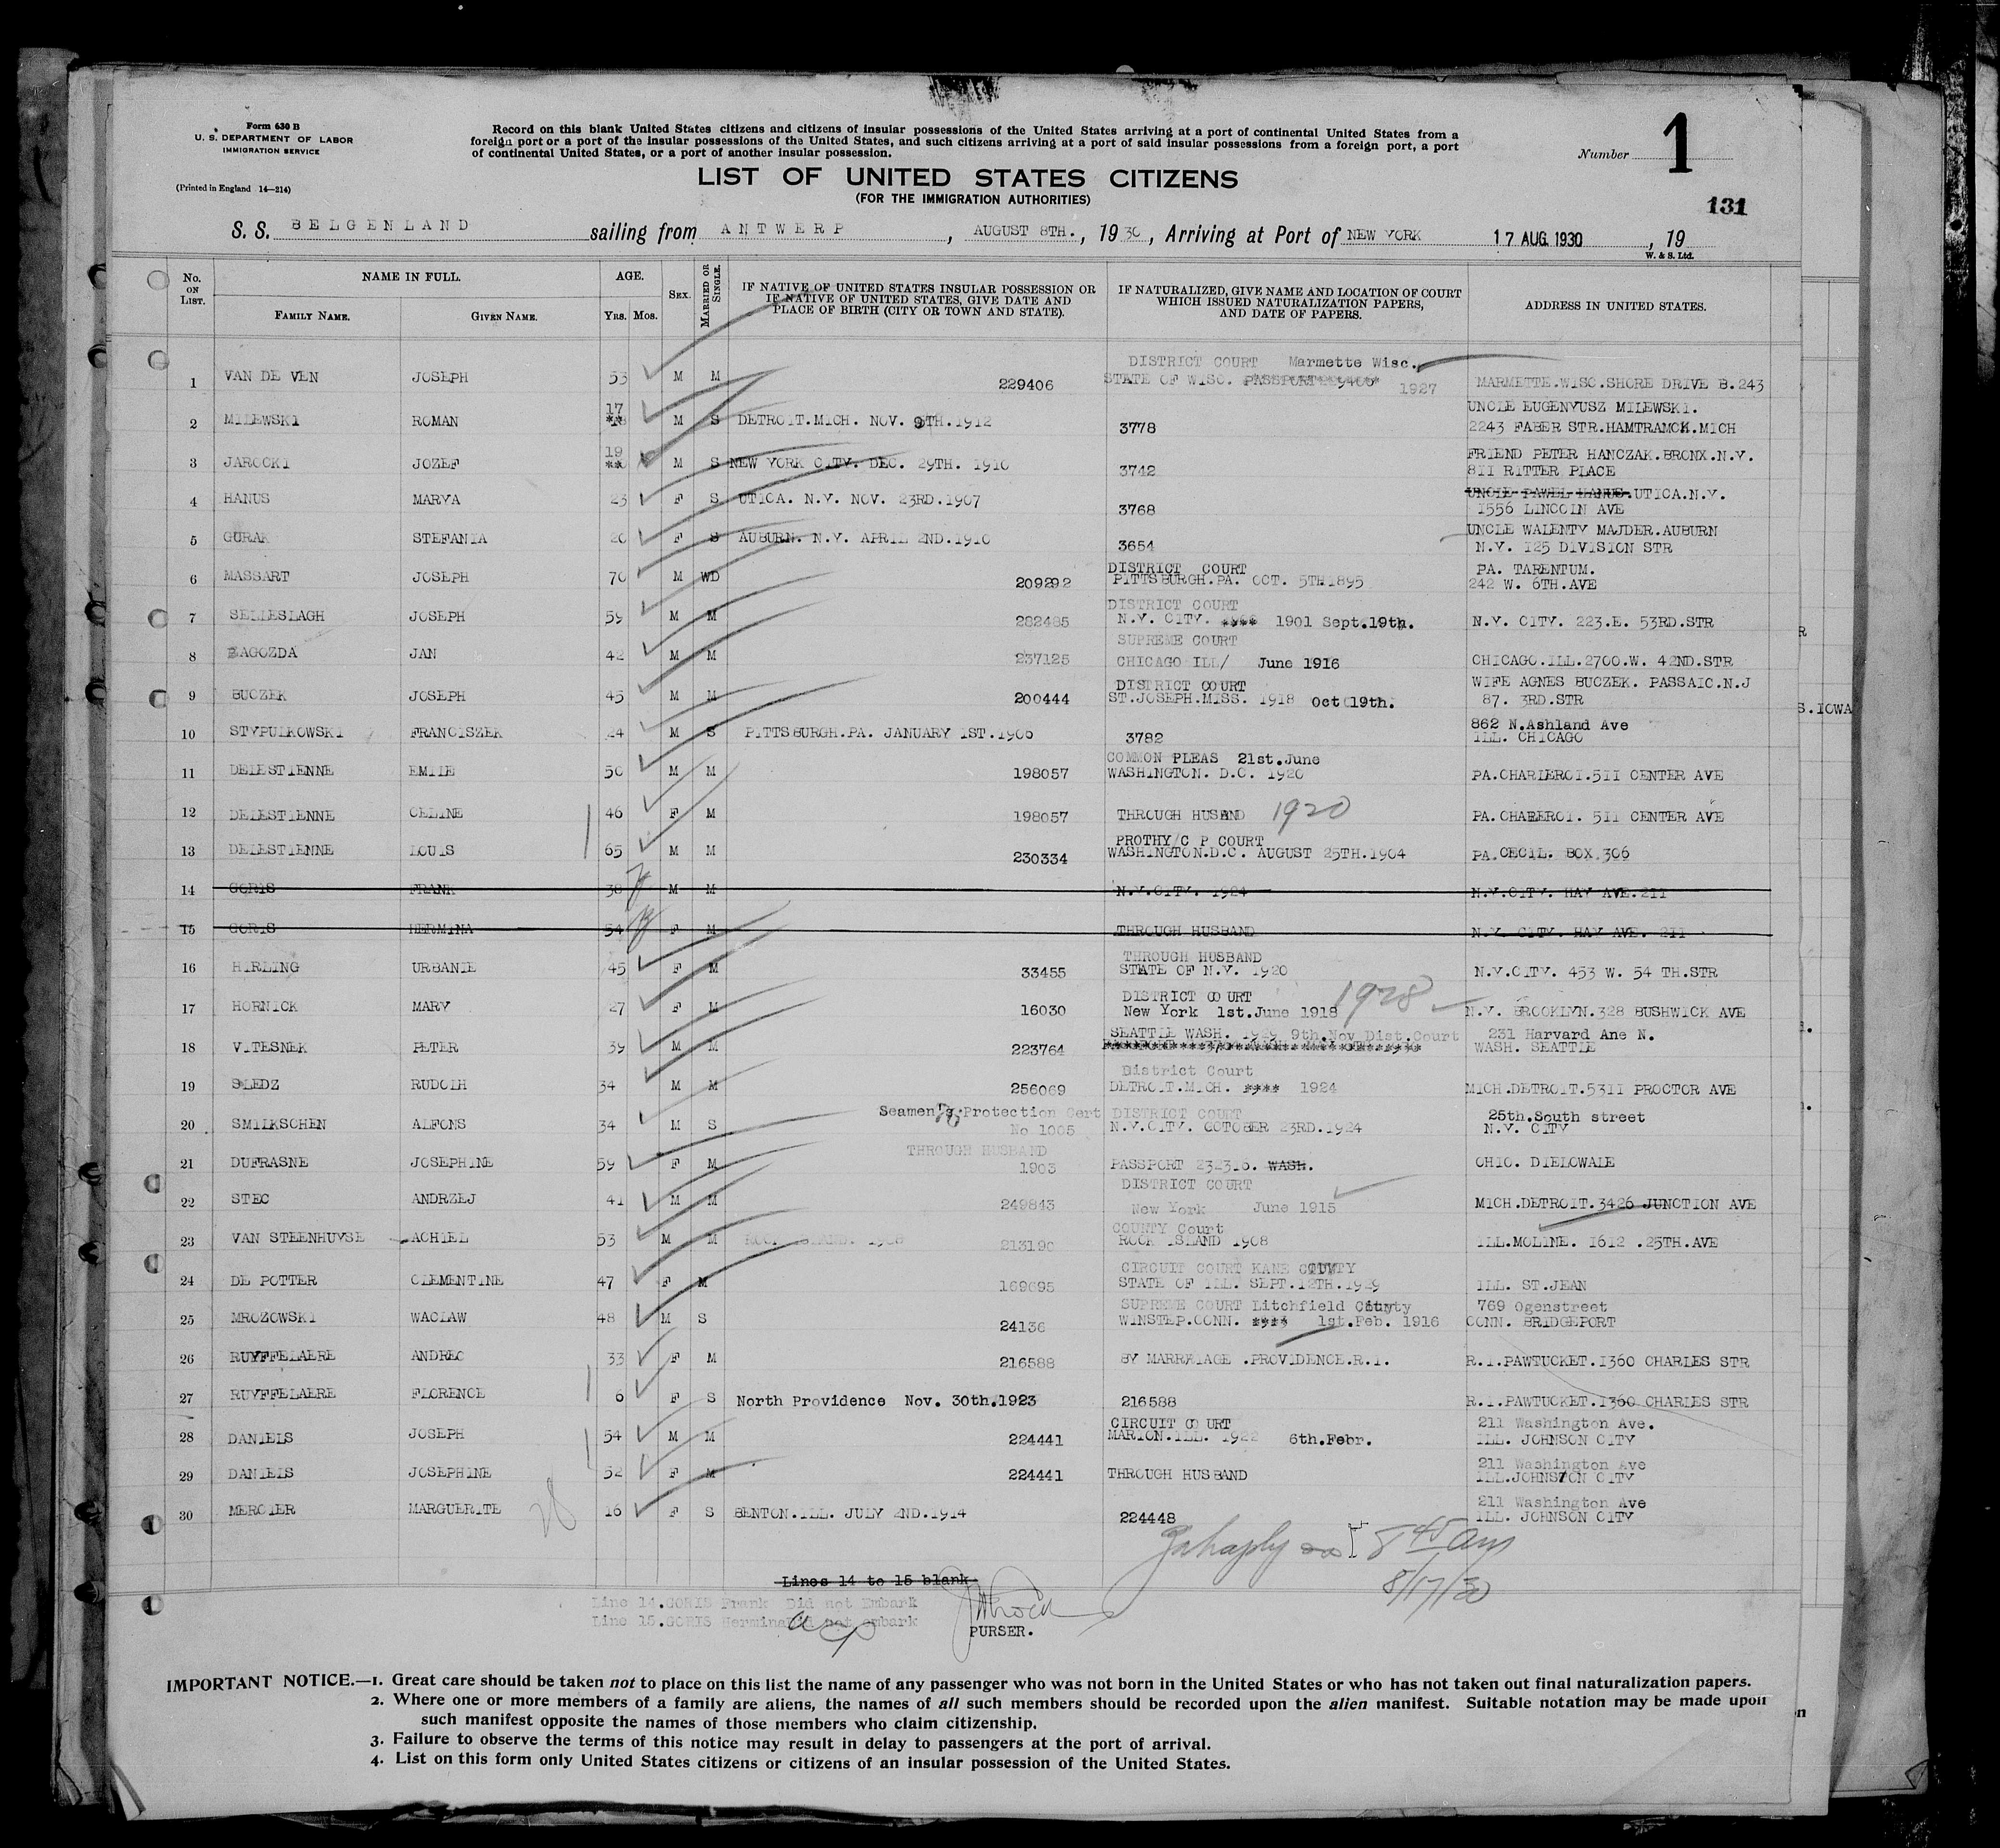 Form 630 B
U. S. DEPARTMENT OF LABOR
IMMIGRATION SERVICE
(Printed in England 14—214)
Record on this blank United States citizens and citizens of insular possessions of the United States arriving at a port of continental United States from a
foreign port or a port of the insular possessions of the United States, and such citizens arriving at a port of said insular possessions from a foreign port, a port
of continental United States, or a port of another insular possession.
Number 1
LIST OF UNITED STATES CITIZENS
(FOR THE IMMIGRATION AUTHORITIES)
131
S. S. BELGENLAND sailing from ANTWERP, AUGUST 8TH., 1930, Arriving at Port of NEW YORK 17 AUG 1930, 19
W. & S. Ltd.
No. ON LIST. NAME IN FULL. FAMILY NAME. GIVEN NAME. AGE. YRS. MOS. SEX. MARRIED OR SINGLE. IF NATIVE OF UNITED STATES INSULAR POSSESSION OR IF NATIVE OF UNITED STATES, GIVE DATE AND PLACE OF BIRTH (CITY OR TOWN AND STATE). IF NATURALIZED, GIVE NAME AND LOCATION OF COURT WHICH ISSUED NATURALIZATION PAPERS, AND DATE OF PAPERS. ADDRESS IN UNITED STATES.
DISTRICT COURT Marmette Wisc.
1 VAN DE VEN JOSEPH 53 M M 229406 STATE OF WISC. PASSPORT 1927 MARMETTE.WISC.SHORE DRIVE B.243
17 UNCLE EUGENYUSZ MILEWSKI.
2 MILEWSKI ROMAN M S DETROIT.MICH. NOV. 9TH.1912 3778 2243 FABER STR.HAMTRAMCK.MICH
19 FRIEND PETER HANCZAK.BRONX.N.Y.
3 JAROCKI JOZEF ** M S NEW YORK CITY. DEC. 29TH. 1910 3742 811 RITTER PLACE
UNCLE PAWEL HANUS.UTICA.N.Y.
4 HANUS MARYA 23 F S UTICA. N.Y. NOV. 23RD.1907 3768 1556 LINCOLN AVE
UNCLE WALENTY MAJDER.AUBURN
5 GURAK STEFANIA 20 F S AUBURN. N.Y. APRIL 2ND.1910 3654 N.Y. 125 DIVISION STR
DISTRICT COURT PA. TARENTUM.
6 MASSART JOSEPH 70 M WD 209292 PITTSBURGH.PA. OCT. 5TH1895 242 W. 6TH.AVE
DISTRICT COURT
7 SELLESLAGH JOSEPH 59 M M 282485 N.Y. CITY. **** 1901 Sept.19th. N.Y. CITY. 223.E. 53RD.STR
SUPREME COURT
8 ZAGOZDA JAN 42 M M 237125 CHICAGO ILL/ June 1916 CHICAGO.ILL.2700.W. 42ND.STR
DISTRICT COURT WIFE AGNES BUCZEK. PASSAIC.N.J
9 BUCZEK JOSEPH 45 M M 200444 ST.JOSEPH.MISS. 1918 Oct 19th. 87. 3RD.STR
862 N.Ashland Ave
10 STYPULKOWSKI FRANCISZEK 24 M S PITTSBURGH.PA. JANUARY 1ST.1906 3782 ILL. CHICAGO
COMMON PLEAS 21st.June
11 DELESTIENNE EMILE 50 M M 198057 WASHINGTON. D.C. 1920 PA.CHARLEROI.511 CENTER AVE
12 DELESTIENNE CELINE 46 F M 198057 THROUGH HUSAND 1920 PA.CHARLEROI. 511 CENTER AVE
PROTHY/C P COURT
13 DELESTIENNE LOUIS 65 M M 230334 WASHINGTON.D.C. AUGUST 25TH.1904 PA.CECIL. BOX 306
14 GORIS FRANK 38 M M N.Y.CITY. 1924 N.Y.CITY. HAY AVE.211
15 GORIS HERMINA 34 F M THROUGH HUSBAND N.Y. CITY. HAY AVE. 211
THROUGH HUSBAND
16 HIRLING URBANIE 45 F M 33455 STATE OF N.Y. 1920 N.Y.CITY. 453 W. 54 TH.STR
DISTRICT COURT 1928
17 HORNICK MARY 27 F M 16030 New York 1st.June 1918 N.Y. BROOKLYN.328 BUSHWICK AVE
SEATTLE WASH. 1929 9th.Nov Dist.Court 231 Harvard Ane N.
18 VITESNEK PETER 39 M M 223764 WASH. SEATTLE
District Court
19 SLEDZ RUDOLH 34 M M 256069 DETROIT.MICH. **** 1924 MICH.DETROIT.5311 PROCTOR AVE
Seamen's Protection Cert DISTRICT COURT 25th.South street
20 SMILKSCHEN ALFONS 34 M S No 1005 N.Y.CITY. OCTOBER 23RD.1924 N.Y. CITY
THROUGH HUSBAND
21 DUFRASNE JOSEPHINE 59 F M 1903 PASSPORT 232316. WASH. OHIO. DIELOWALE
DISTRICT COURT
22 STEC ANDRZEJ 41 M M 249843 New York June 1915 MICH.DETROIT.3426 JUNCTION AVE
COUNTY Court
23 VAN STEENHUYSE ACHIEL 53 M M ROCK ISLAND. 1908 213190 ROCK ISLAND 1908 ILL.MOLINE. 1612 .25TH.AVE
CIRCUIT COURT KANE
24 DE POTTER CLEMENTINE 47 F M 169695 STATE OF ILL. SEPT.12TH.1929 ILL. ST.JEAN
SUPREME COURT Litchfield 769 Ogenstreet
25 MROZOWSKI WACLAW 48 M S 24136 WINSTEP.CONN. **** 1st.Feb. 1916 CONN. BRIDGEPORT
26 RUYFFELAERE ANDREC 33 F M 216588 BY MARRIAGE .PROVIDENCE.R.I. R.I.PAWTUCKET.1360 CHARLES STR
27 RUYFFELAERE FLORENCE 6 F S North Providence Nov. 30th.1923 216588 R.I.PAWTUCKET.1360 CHARLES STR
CIRCUIT COURT 211 Washington Ave.
28 DANIELS JOSEPH 54 M M 224441 MARION.ILL. 1922 6th.Febr. ILL. JOHNSON CITY
211 Washington Ave
29 DANIELS JOSEPHINE 52 F M 224441 THROUGH HUSBAND ILL.JOHNSTON CITY
211 Washington Ave
30 MERCIER MARGUERITE 16 F S BENTON.ILL. JULY 2ND.1914 224448 ILL. JOHNSON CITY
28
8 45 am
8/17/30
Lines 14 to 15 blank
Line 14.GORIS Frank Did not Embark
Line 15.GORIS Hermina Did not embark
PURSER.
IMPORTANT NOTICE.—1. Great care should be taken not to place on this list the name of any passenger who was not born in the United States or who has not taken out final naturalization papers.
2. Where one or more members of a family are aliens, the names of all such members should be recorded upon the alien manifest. Suitable notation may be made upon
such manifest opposite the names of those members who claim citizenship.
3. Failure to observe the terms of this notice may result in delay to passengers at the port of arrival.
4. List on this form only United States citizens or citizens of an insular possession of the United States.
R
S.IOWA